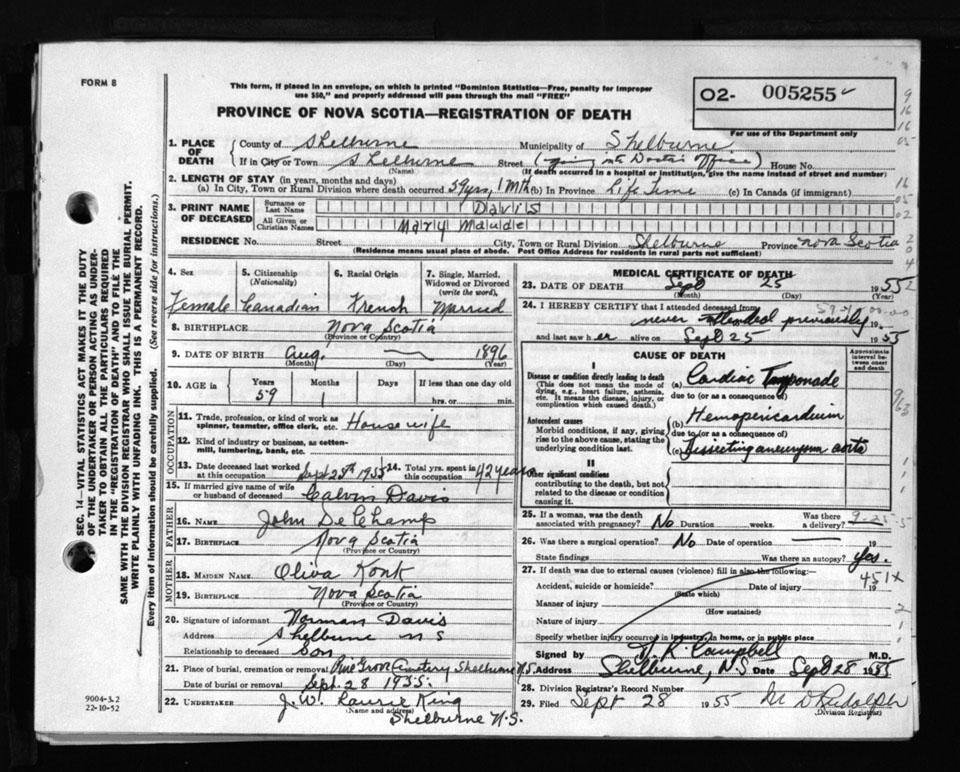 FORM 8
This form, if placed in an envelope, on which is printed "Dominion Statistics—Free, penalty for improper
use $50," and properly addressed will pass through the mail "FREE"
PROVINCE OF NOVA SCOTIA—REGISTRATION OF DEATH
O2- 005255
For use of the Department only
SEC. 14—VITAL STATISTICS ACT MAKES IT THE DUTY
OF THE UNDERTAKER OR PERSON ACTING AS UNDER-
TAKER TO OBTAIN ALL THE PARTICULARS REQUIRED
IN THE "REGISTRATION OF DEATH" AND TO FILE THE
SAME WITH THE DIVISION REGISTRAR WHO SHALL ISSUE THE BURIAL PERMIT.
WRITE PLAINLY WITH UNFADING INK. THIS IS A PERMANENT RECORD.
Every item of information should be carefully supplied. (See reverse side for instructions).
1. PLACE OF DEATH County of Shelburne Municipality of Shelburne
If in City or Town Shelburne Street (going into Doctor's office) House No.
(Name) (If death occurred in a hospital or institution, give the name instead of street and number)
2. LENGTH OF STAY (in years, months and days)
(a) In City, Town or Rural Division where death occurred 59 yrs, 1 Mth (b) In Province Life Time (c) In Canada (if immigrant)
3. PRINT NAME OF DECEASED Surname or Last Name Davis
All Given or Christian Names Mary Maude
RESIDENCE No. Street City, Town or Rural Division Shelburne Province Nova Scotia
(Residence means usual place of abode. Post Office Address for residents in rural parts not sufficient)
4. Sex 5. Citizenship (Nationality) 6. Racial Origin 7. Single, Married, Widowed or Divorced (write the word),
Female Canadian French Married
8. BIRTHPLACE Nova Scotia
(Province or Country)
9. DATE OF BIRTH Aug. — 1896
(Month) (Day) (Year)
10. AGE in Years Months Days If less than one day old
59 1 hrs. or min.
OCCUPATION
11. Trade, profession, or kind of work as spinner, teamster, office clerk, etc. Housewife
12. Kind of industry or business, as cotten-mill, lumbering, bank, etc.
13. Date deceased last worked at this occupation Sept 25th 1955 14. Total yrs. spent in this occupation 42 years
15. If married give name of wife or husband of deceased Calvin Davis
FATHER
16. NAME John DeChamp
17. BIRTHPLACE Nova Scotia
(Province or Country)
MOTHER
18. MAIDEN NAME Oliva Konk
19. BIRTHPLACE Nova Scotia
(Province or Country)
20. Signature of informant Norman Davis
Address Shelburne N S
Relationship to deceased Son
21. Place of burial, cremation or removal Pine Grove Cemetery Shelburne N.S.
Date of burial or removal Sept. 28 1955.
22. UNDERTAKER J. W. Laurie King
(Name and address)
Shelburne N.S.
9004-3.2
22-10-52
MEDICAL CERTIFICATE OF DEATH
23. DATE OF DEATH Sept 25 1955
(Month) (Day) (Year)
24. I HEREBY CERTIFY that I attended deceased from
never attended previously 19
and last saw her alive on Sept 25 1955
CAUSE OF DEATH
Approximate interval between onset and death
I
Disease or condition directly leading to death
(This does not mean the mode of dying, e.g., heart failure, asthenia, etc. It means the disease, injury, or complication which caused death.)
(a) Cardiac Tamponade
due to (or as a consequence of)
Antecedent causes
Morbid conditions, if any, giving rise to the above cause, stating the underlying condition last.
(b) Hemopericardium
due to (or as a consequence of)
(c) Dissecting aneurysm aorta
II
Other significant conditions
contributing to the death, but not related to the disease or condition causing it.
25. If a woman, was the death associated with pregnancy? No Duration weeks. Was there a delivery?
9-25-5
26. Was there a surgical operation? No Date of operation — 19
State findings Was there an autopsy? Yes.
27. If death was due to external causes (violence) fill in also the following:—
451x
Accident, suicide or homicide? Date of injury 19
(State which)
Manner of injury
(How sustained)
Nature of injury
Specify whether injury occurred in industry, in home, or in public place
Signed by K. Campbell M.D.
Address Shelburne, N.S Date Sept 28 1955
28. Division Registrar's Record Number
29. Filed Sept 28 1955 Rudolph
(Division Registrar)